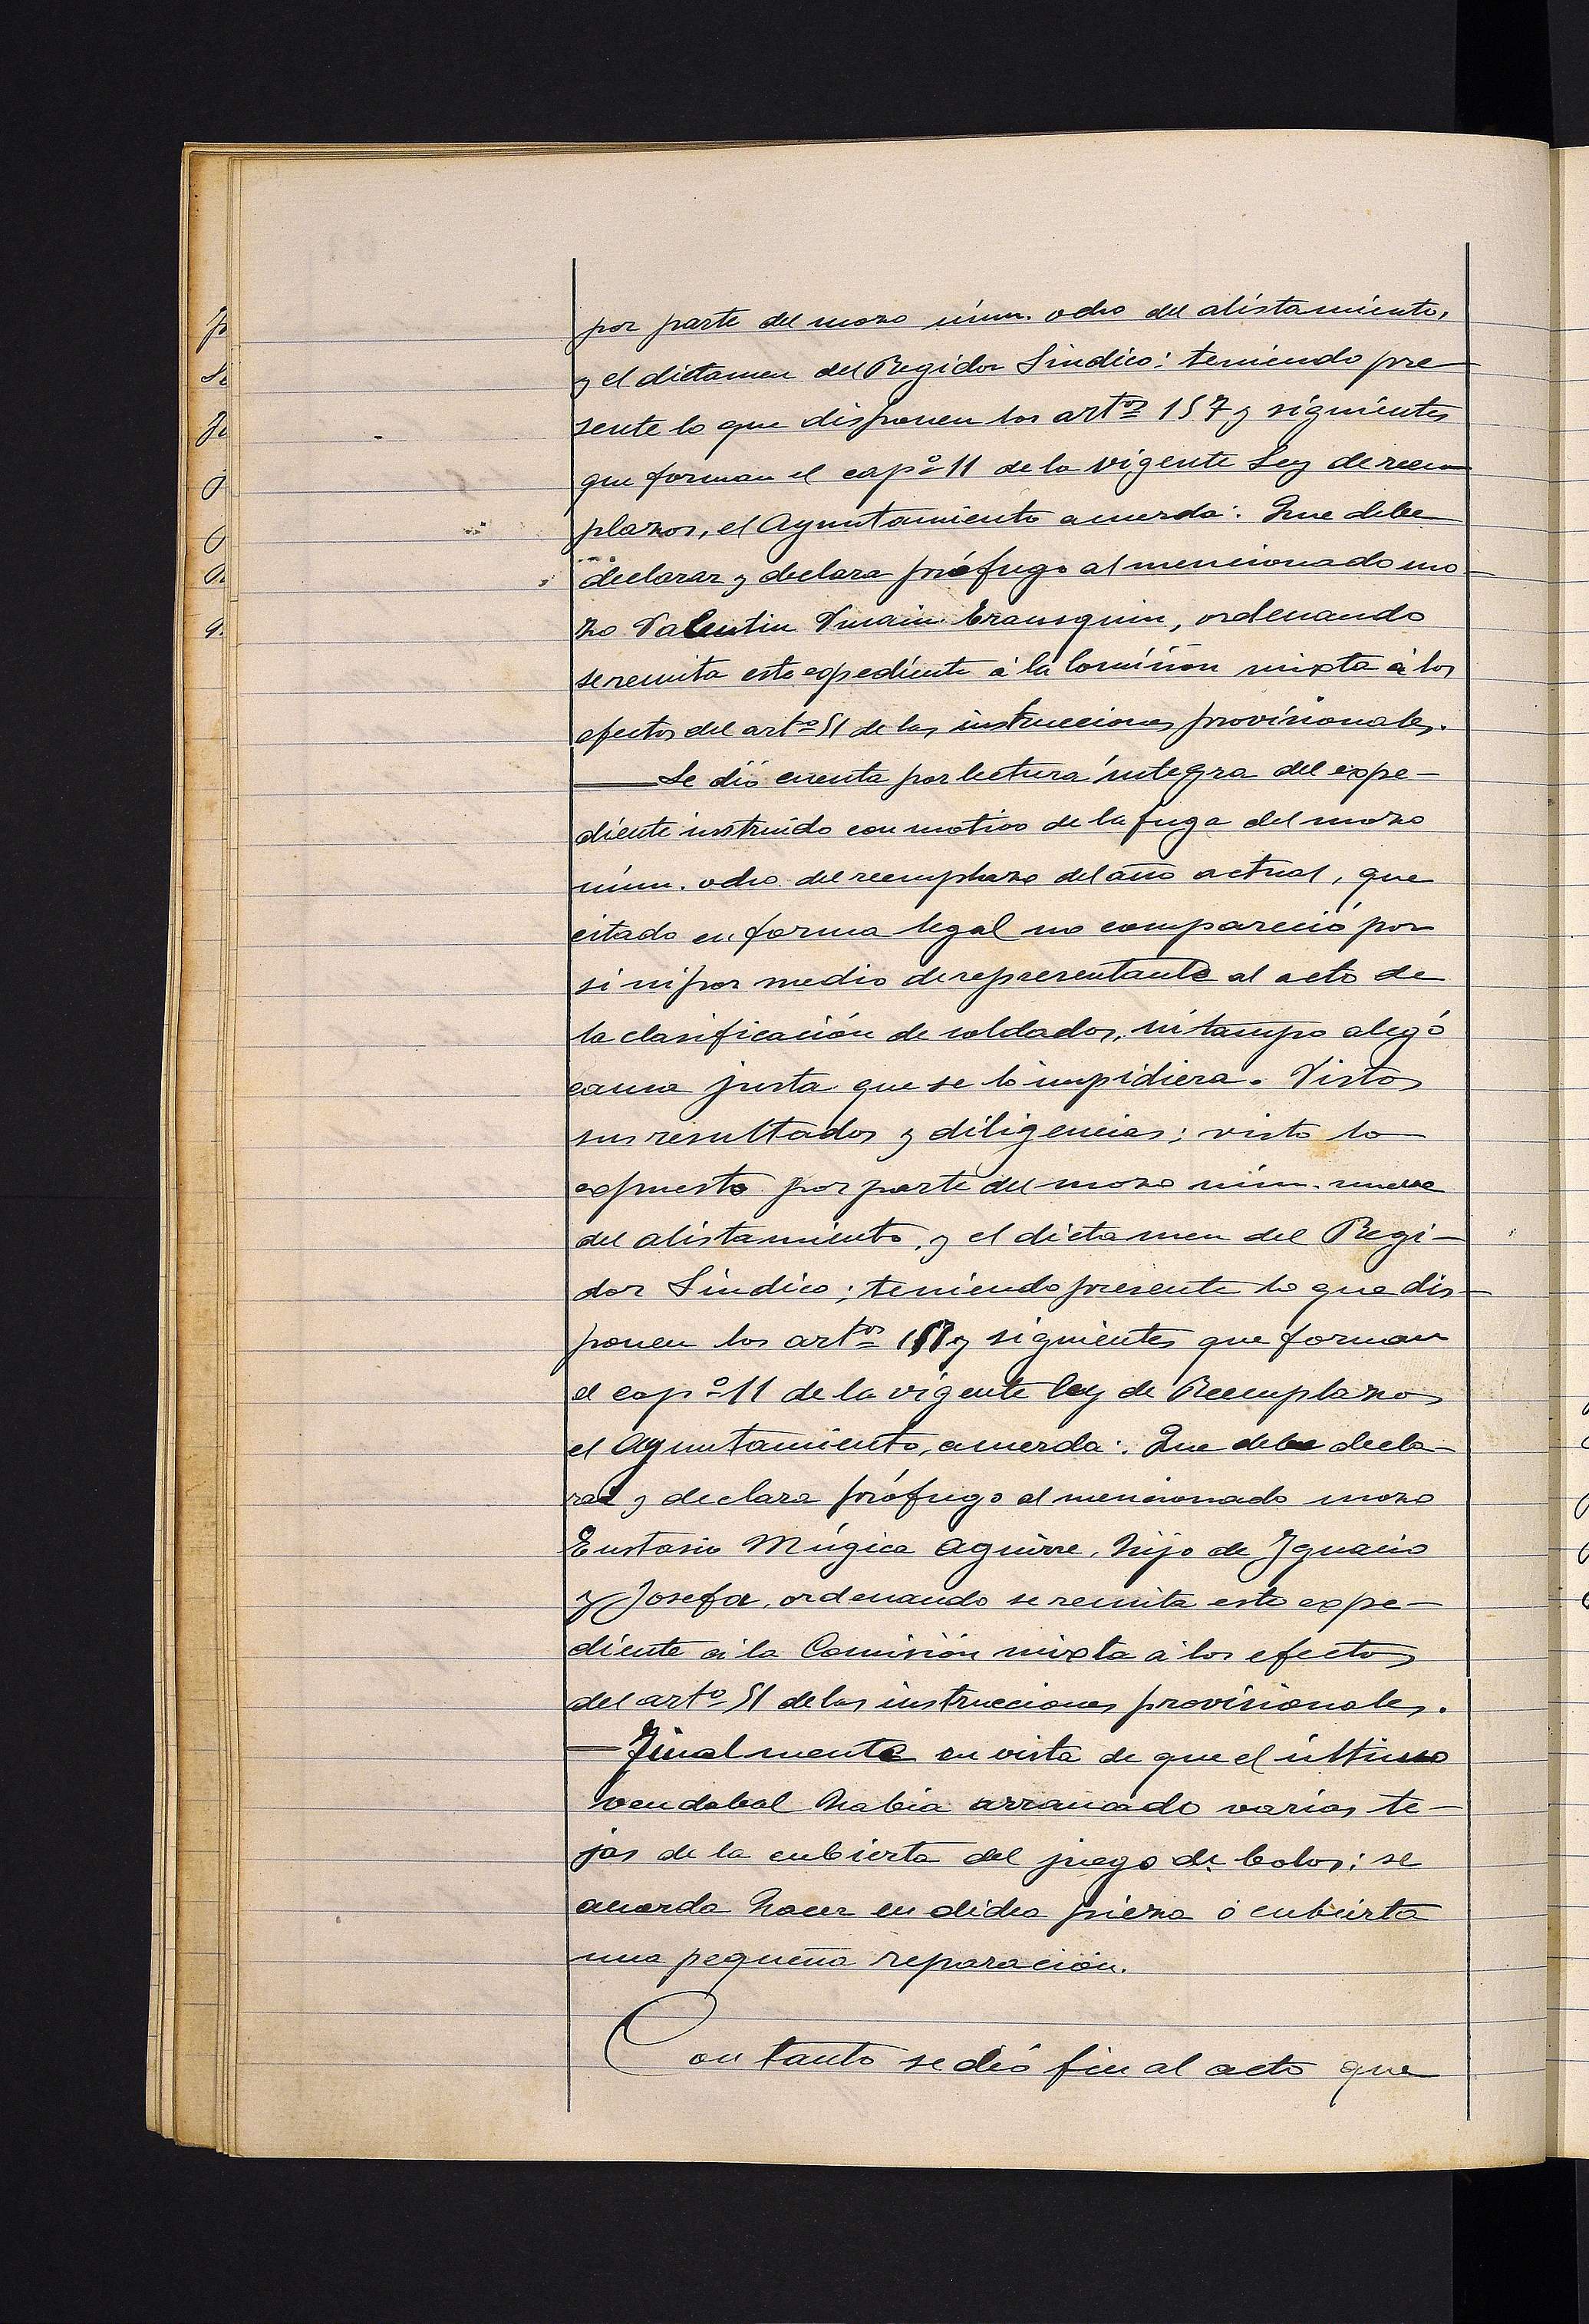 por parte del mozo núm. ocho del alistamiento,
y el dictamen del Regidor Sindico: teniendo pre
sente lo que disponen los artos 157 y siguientes
que forman el capº 11 de la vigente Ley de reem
plazos, el Ayuntamiento acuerda: Que debe
declarar y declara prófugo al mencionado mo-
zo Valentin Erausquin, ordenando
se remita este expediente á la Comisión mixta á los
efectos del artº 51 de las instrucciones provisionales.
— Se dió cuenta por lectura íntegra del expe-
diente instruido con motivo de la fuga del mozo
núm. ocho del reemplazo del año actual, que
citado en forma legal no compareció por
si ni por medio de representante al acto de
la clasificación de soldados, ni tampo alegó
causa justa que se lo impidiera. Vistos
sus resultados y diligencias; visto lo
expuesto por parte del mozo núm. nueve
del alistamiento, y el dictamen del Regi-
dor Sindico; teniendo presente lo que dis-
ponen los artos 157 y siguientes que forman
el capº 11 de la vigente ley de Reemplazos
el Ayuntamiento, acuerda: Que debe decla-
rar y declara prófugo al mencionado mozo
Eustasio Múgica Aguirre, hijo de Ignacio
y Josefa, ordenando se remita este expe-
diente á la Comisión mixta á los efectos
del artº 51 de las instrucciones provisionales.
— Finalmente en vista de que el último
vendabal habia arrancado varias te-
jas de la cubierta del juego de bolos; se
acuerda hacer en dicha pieza ó cubierta
una pequeña reparación.
Con tanto se dió fin al acto que